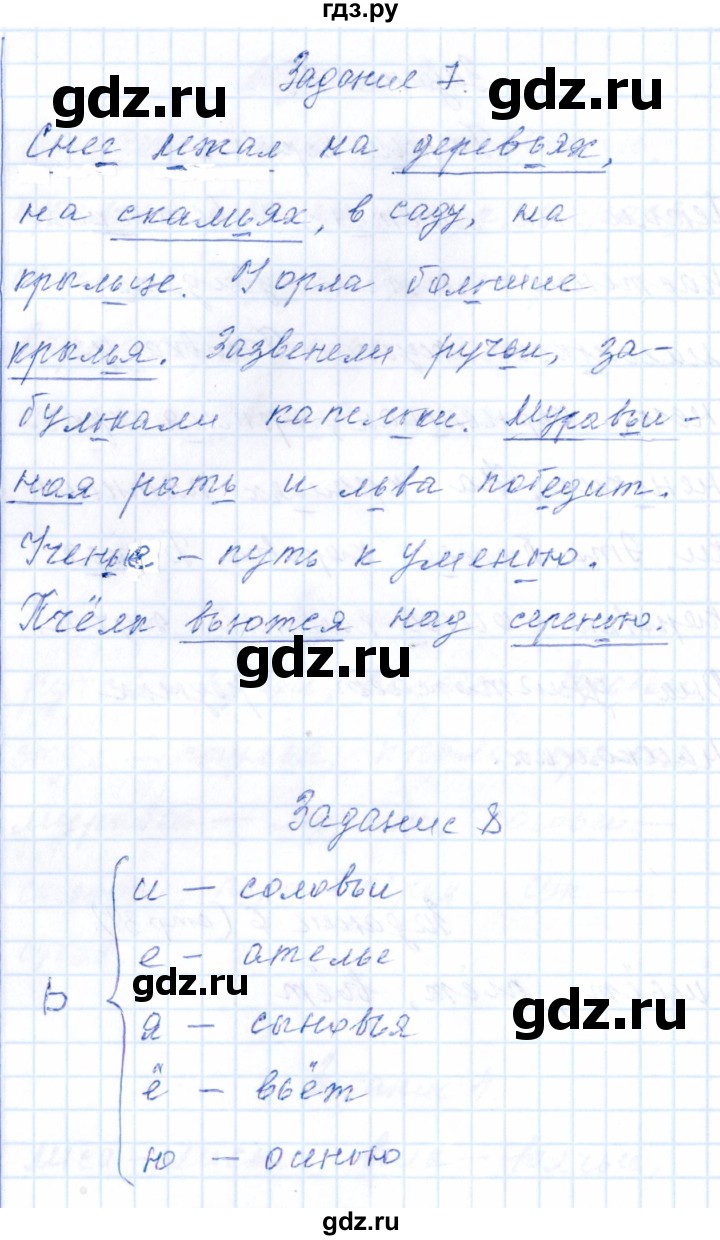 гдз.ру
Задание 7.
gdz.ru gdz.ru
Снег лежал на деревьях,
на скамьях, в саду, на
крыльце. У орла большие
крылья. Зазвенели ручьи, за-
булькали капельки. Муравьи-
ная рать и льва победит.
Ученье – путь к уменью.
Пчёлы вьются над сиренью.
gdz.ru
Задание 8
и – соловьи
е – ателье
gdz.ru
ь
gdz.ru
я – сыновья
ё – вьёт
ю – осинью
gdz.ru